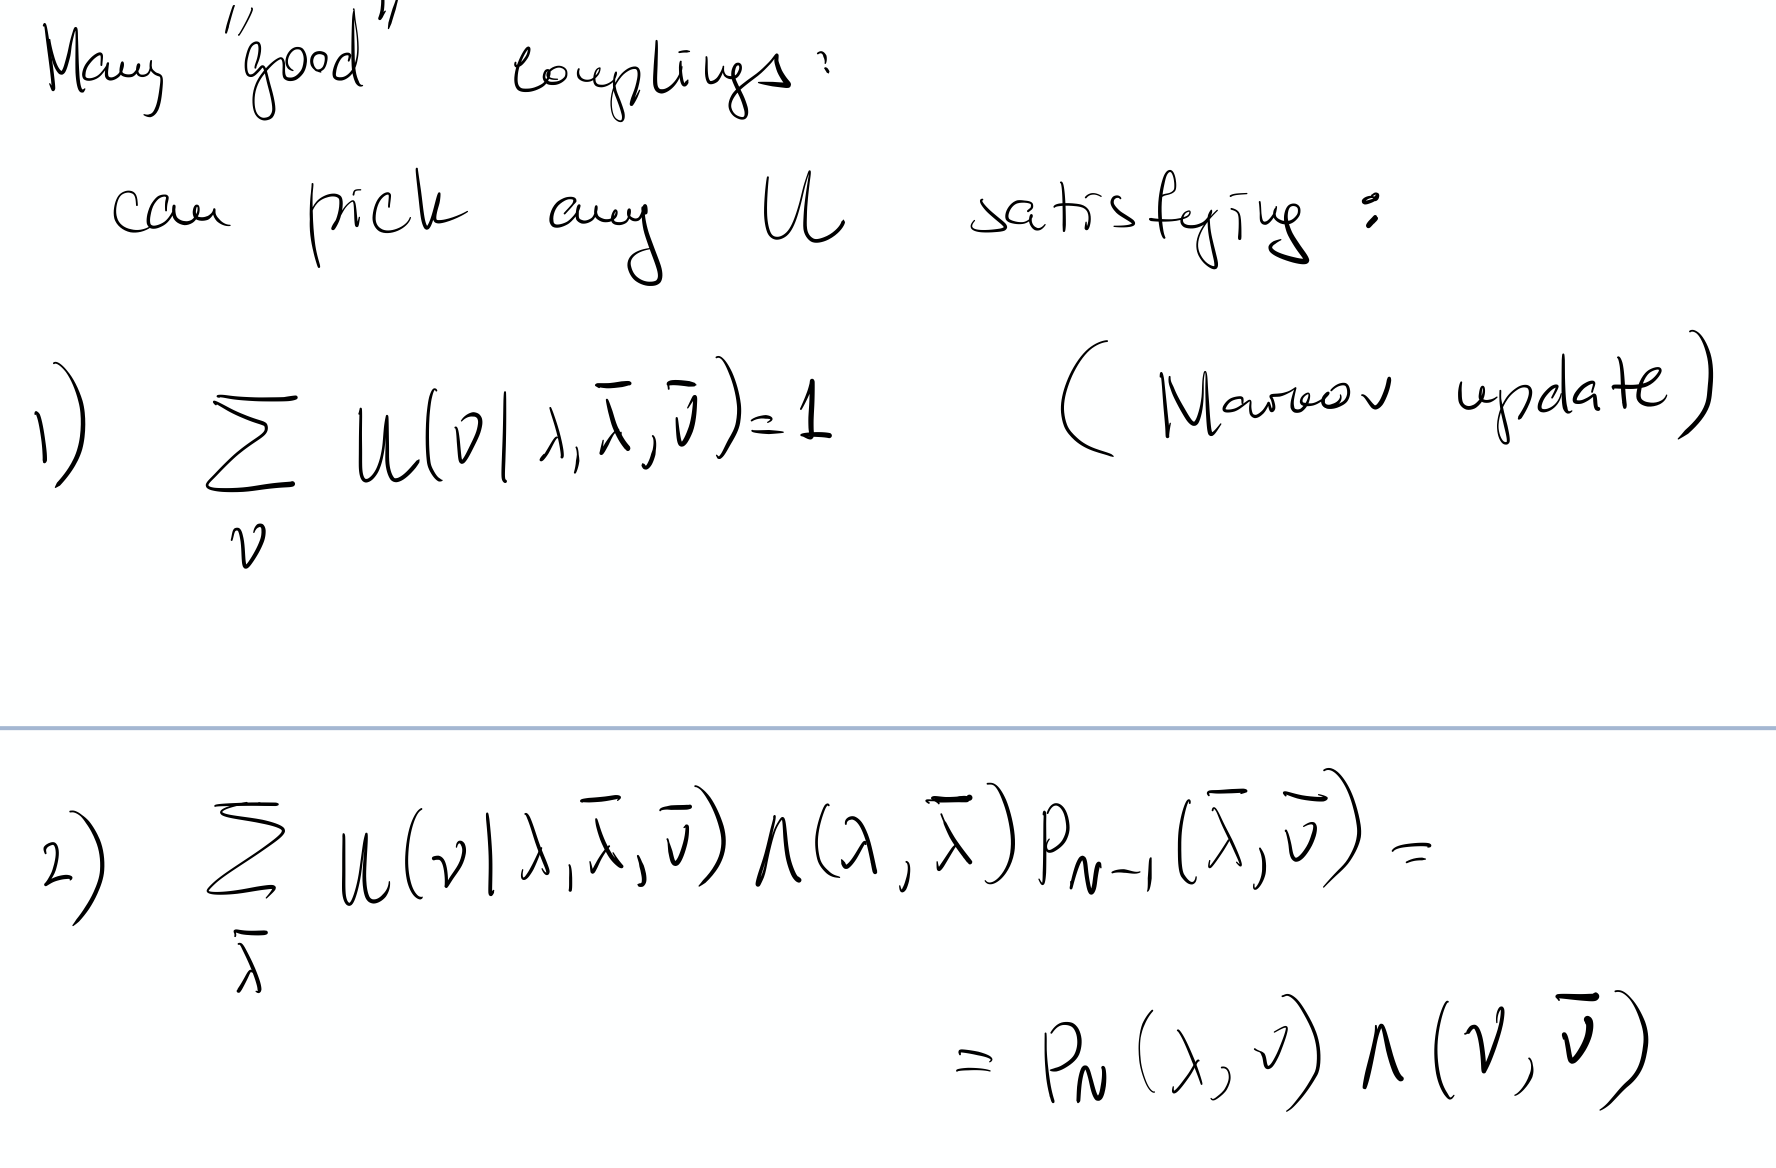 Many "good" couplings:
can pick any U satisfying:
1) ∑_ν U(ν | λ, λ̄, ν̄) = 1 (Markov update)
2) ∑_λ̄ U(ν | λ, λ̄, ν̄) Λ(λ, λ̄) P_{N-1}(λ̄, ν̄) =
= P_N(λ, ν) Λ(ν, ν̄)